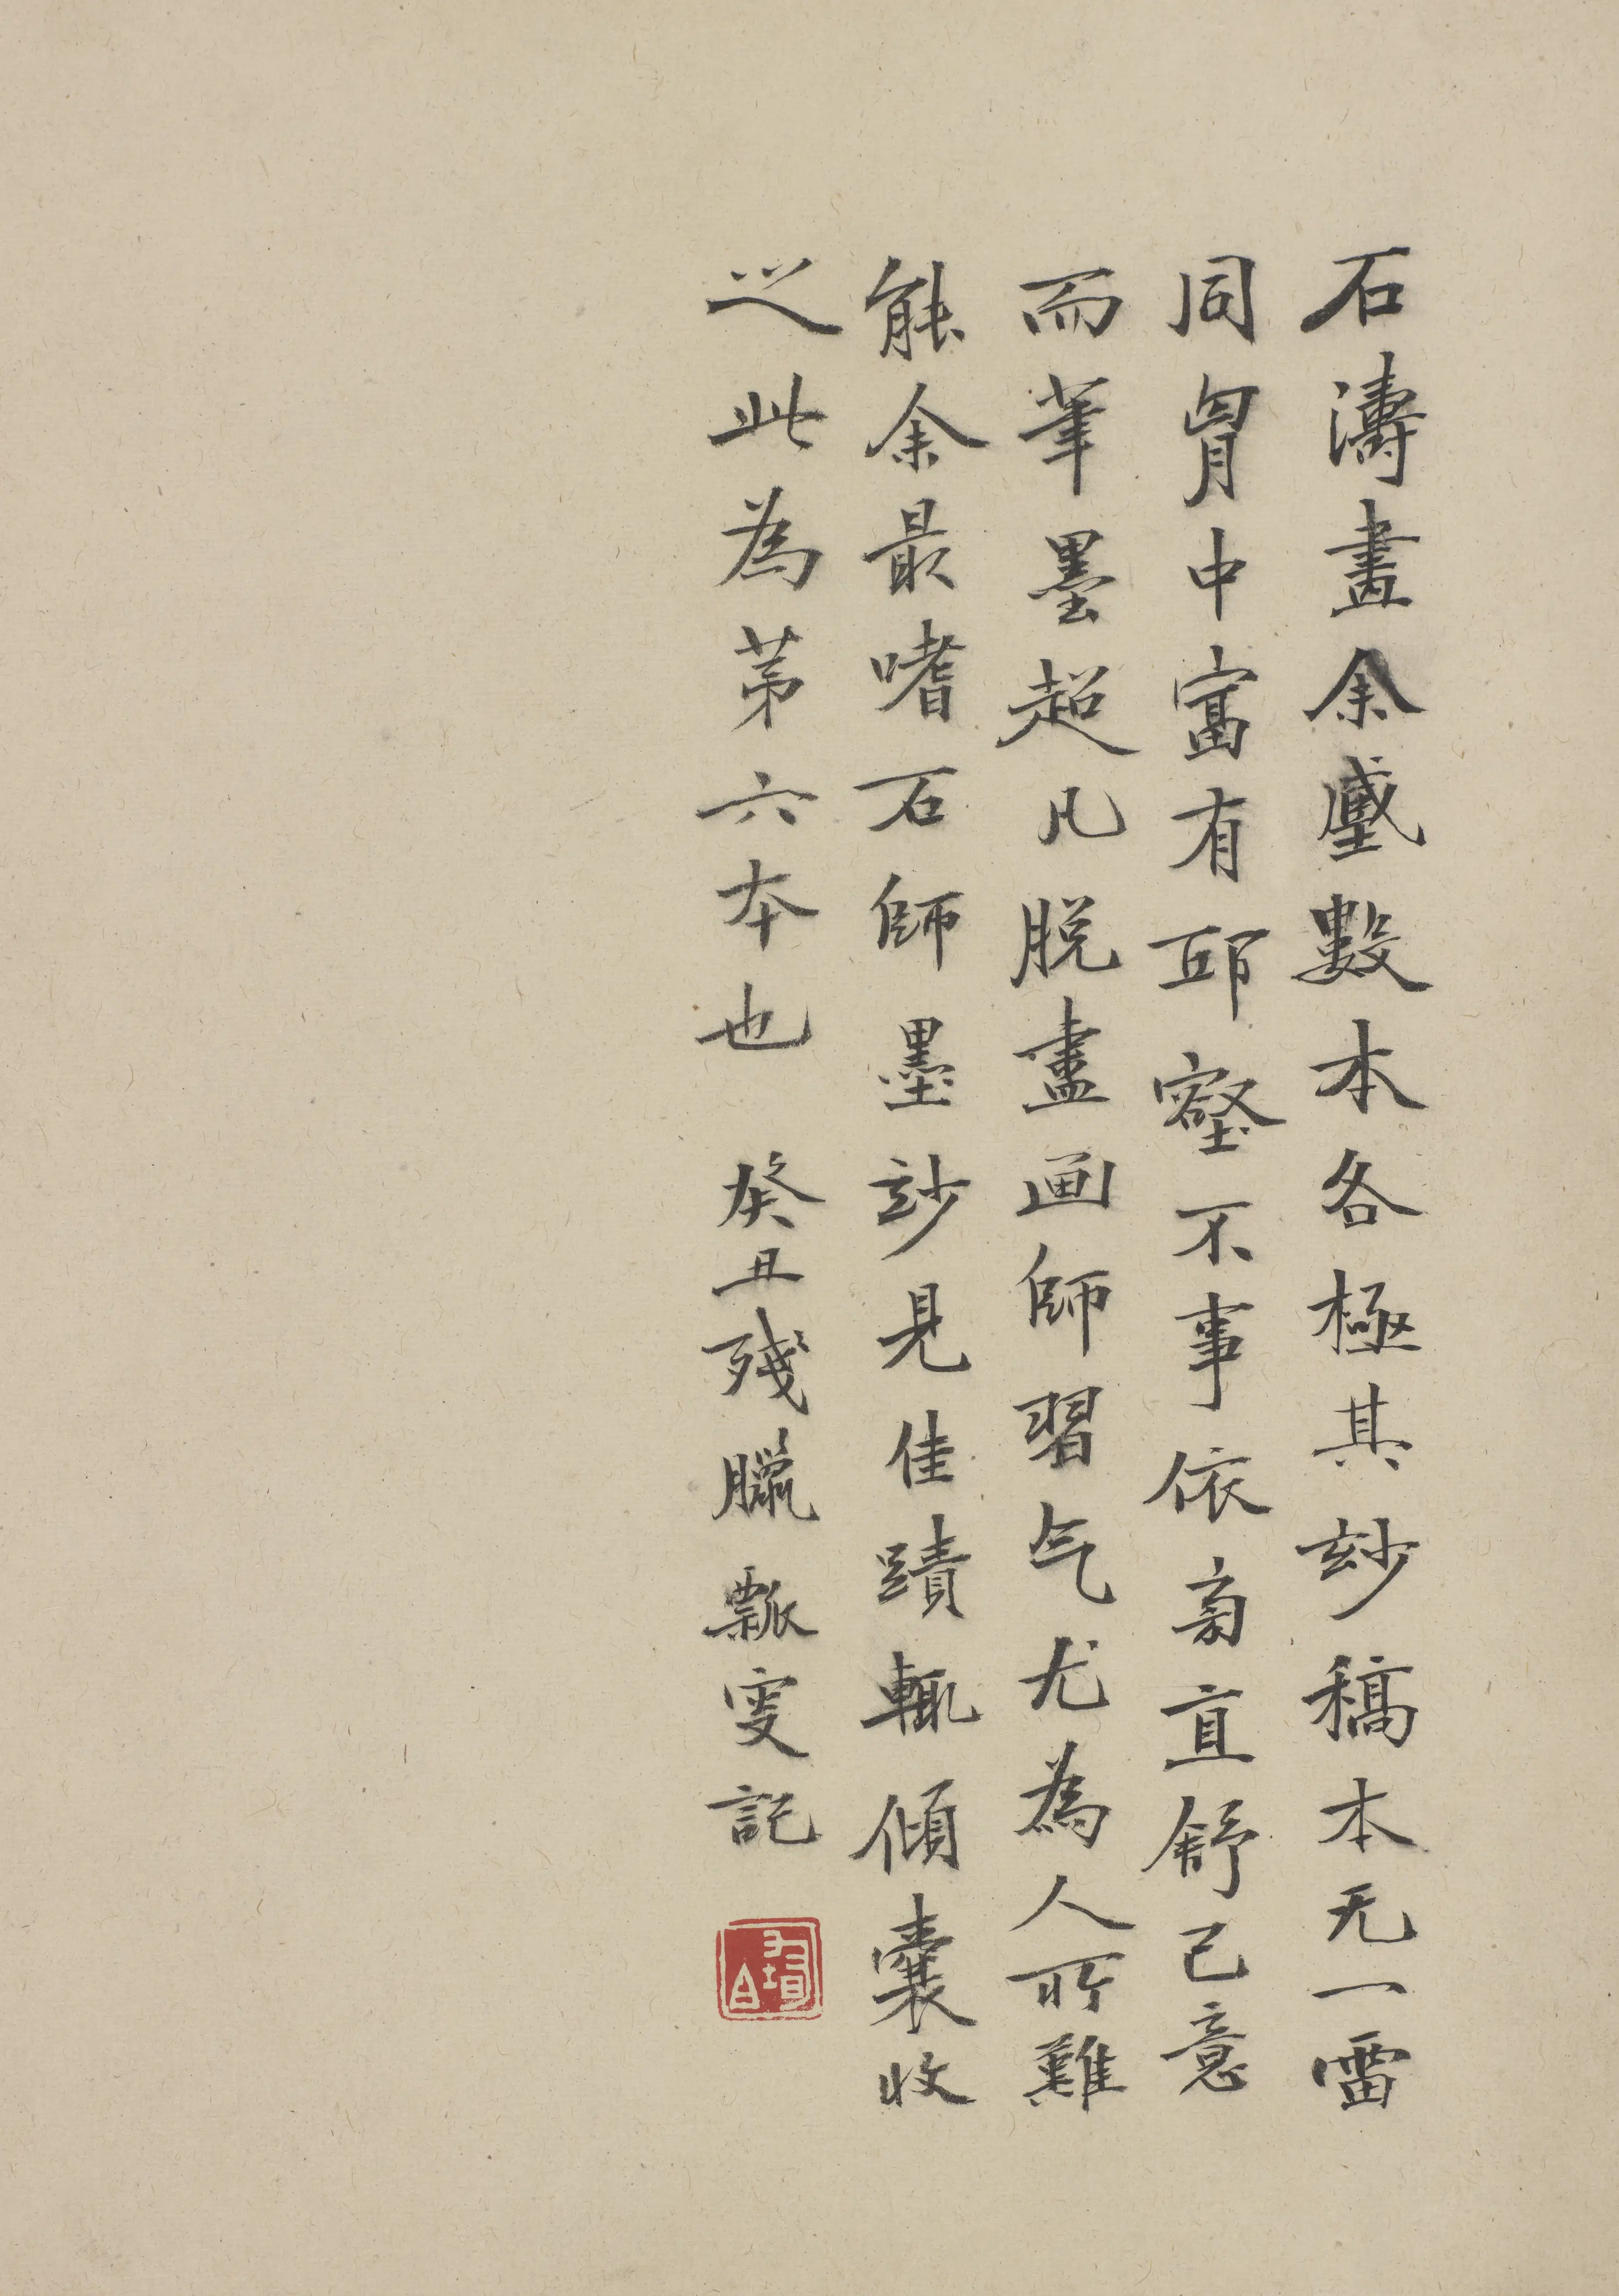 石濤畫余蓋數本各極其玅稿本无一雷
同胷中富有邱壑不事依㫄直舒己意
而筆墨超凡脱盡画師習气尤為人所難
能余最嗜石師墨玅見佳蹟輒傾囊收
之此為苐六本也 癸丑殘臘瓢叟記